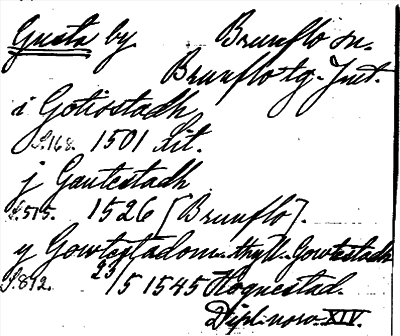 Gusta by Brunflo sn.
Brunflo tg. Jmt.
i Gotiostadh
S.168. 1501 Lit.
j Gautestadh
S.515. 1526 [Brunflo].
y Gowtestadom. Gowtestadh
S.812. 23/5 1545 Hognestad.
Dipl. norv. XIV.